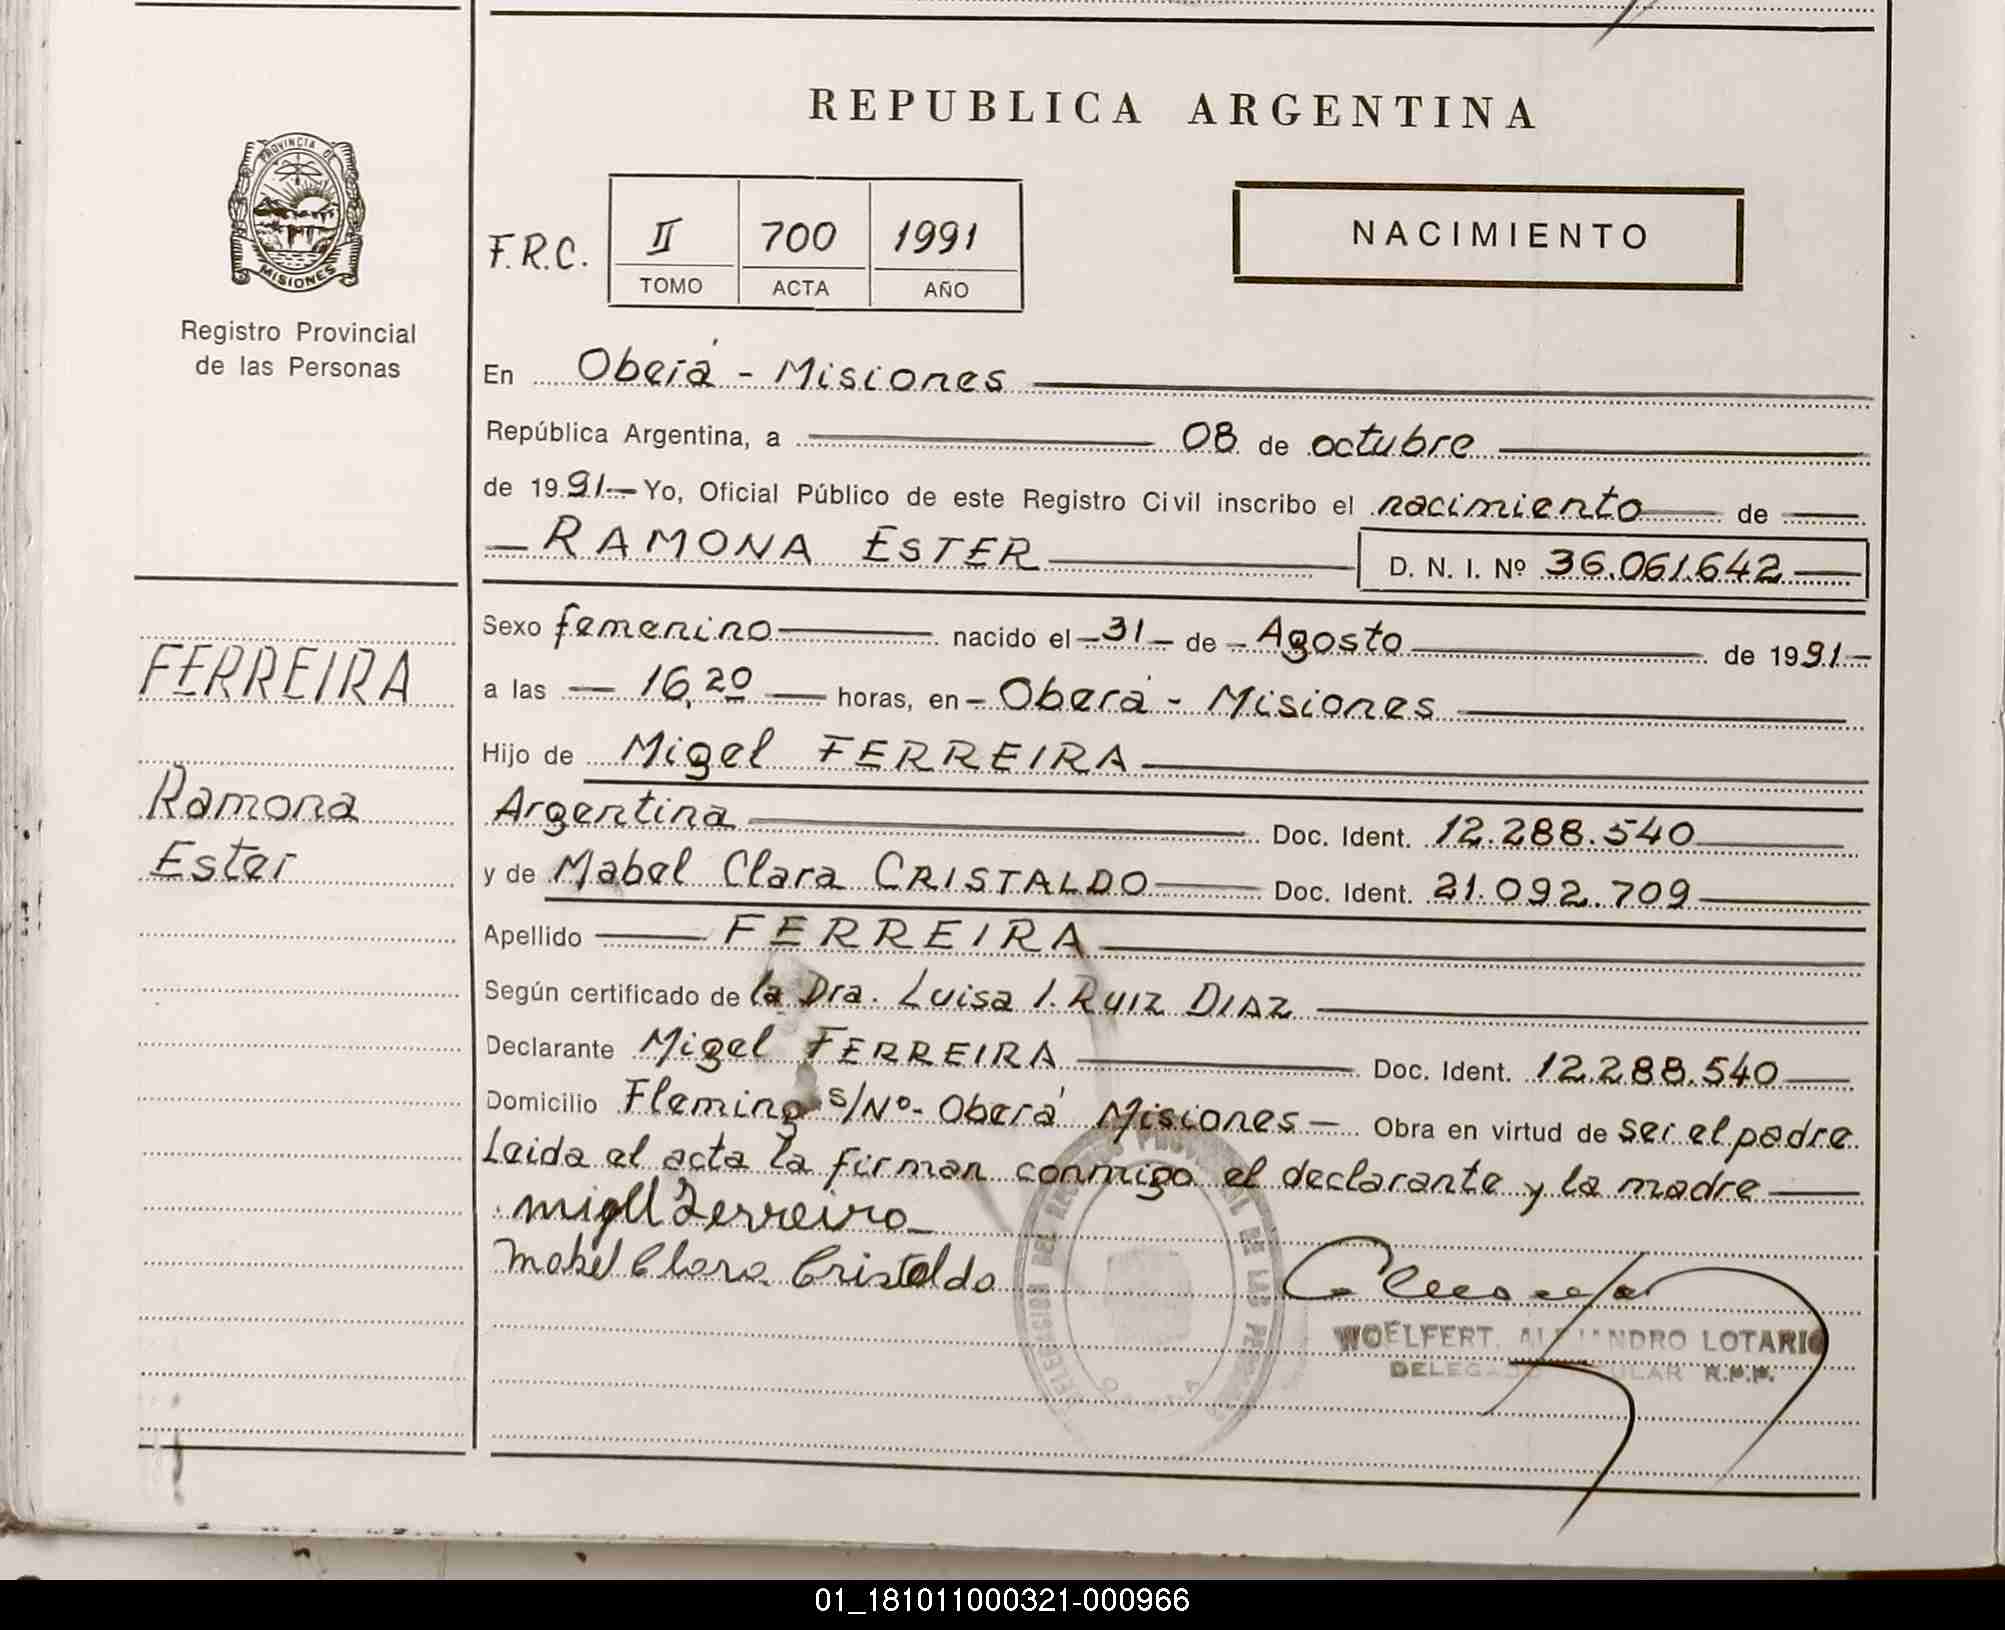 REPUBLICA ARGENTINA
PROVINCIA DE
MISIONES
Registro Provincial
de las Personas
F.R.C. II 700 1991
TOMO ACTA AÑO
NACIMIENTO
En Oberá - Misiones
República Argentina, a 08 de octubre
de 1991 - Yo, Oficial Público de este Registro Civil inscribo el nacimiento de
RAMONA ESTER D. N. I. Nº 36.061.642
Sexo femenino nacido el 31 de Agosto de 1991
a las 16,20 horas, en Oberá - Misiones
Hijo de Migel FERREIRA
Argentina Doc. Ident. 12.288.540
y de Mabel Clara CRISTALDO Doc. Ident. 21.092.709
Apellido FERREIRA
Según certificado de la Dra. Luisa I. RUIZ DIAZ
Declarante Migel FERREIRA Doc. Ident. 12.288.540
Domicilio Fleming s/Nº - Oberá Misiones - Obra en virtud de ser el padre
Leida el acta la firman conmigo el declarante y la madre
FERREIRA
Ramona
Ester
migell Ferreira
Mabel Clara Cristaldo
WOELFERT, ALEJANDRO LOTARIO
DELEGADO TITULAR R.P.P.
01_181011000321-000966